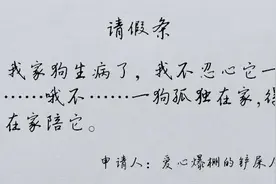 请假条
我家狗生病了，我不忍心它一
……哦不……一狗孤独在家，得
在家陪它。
申请人：爱心爆棚的铲屎